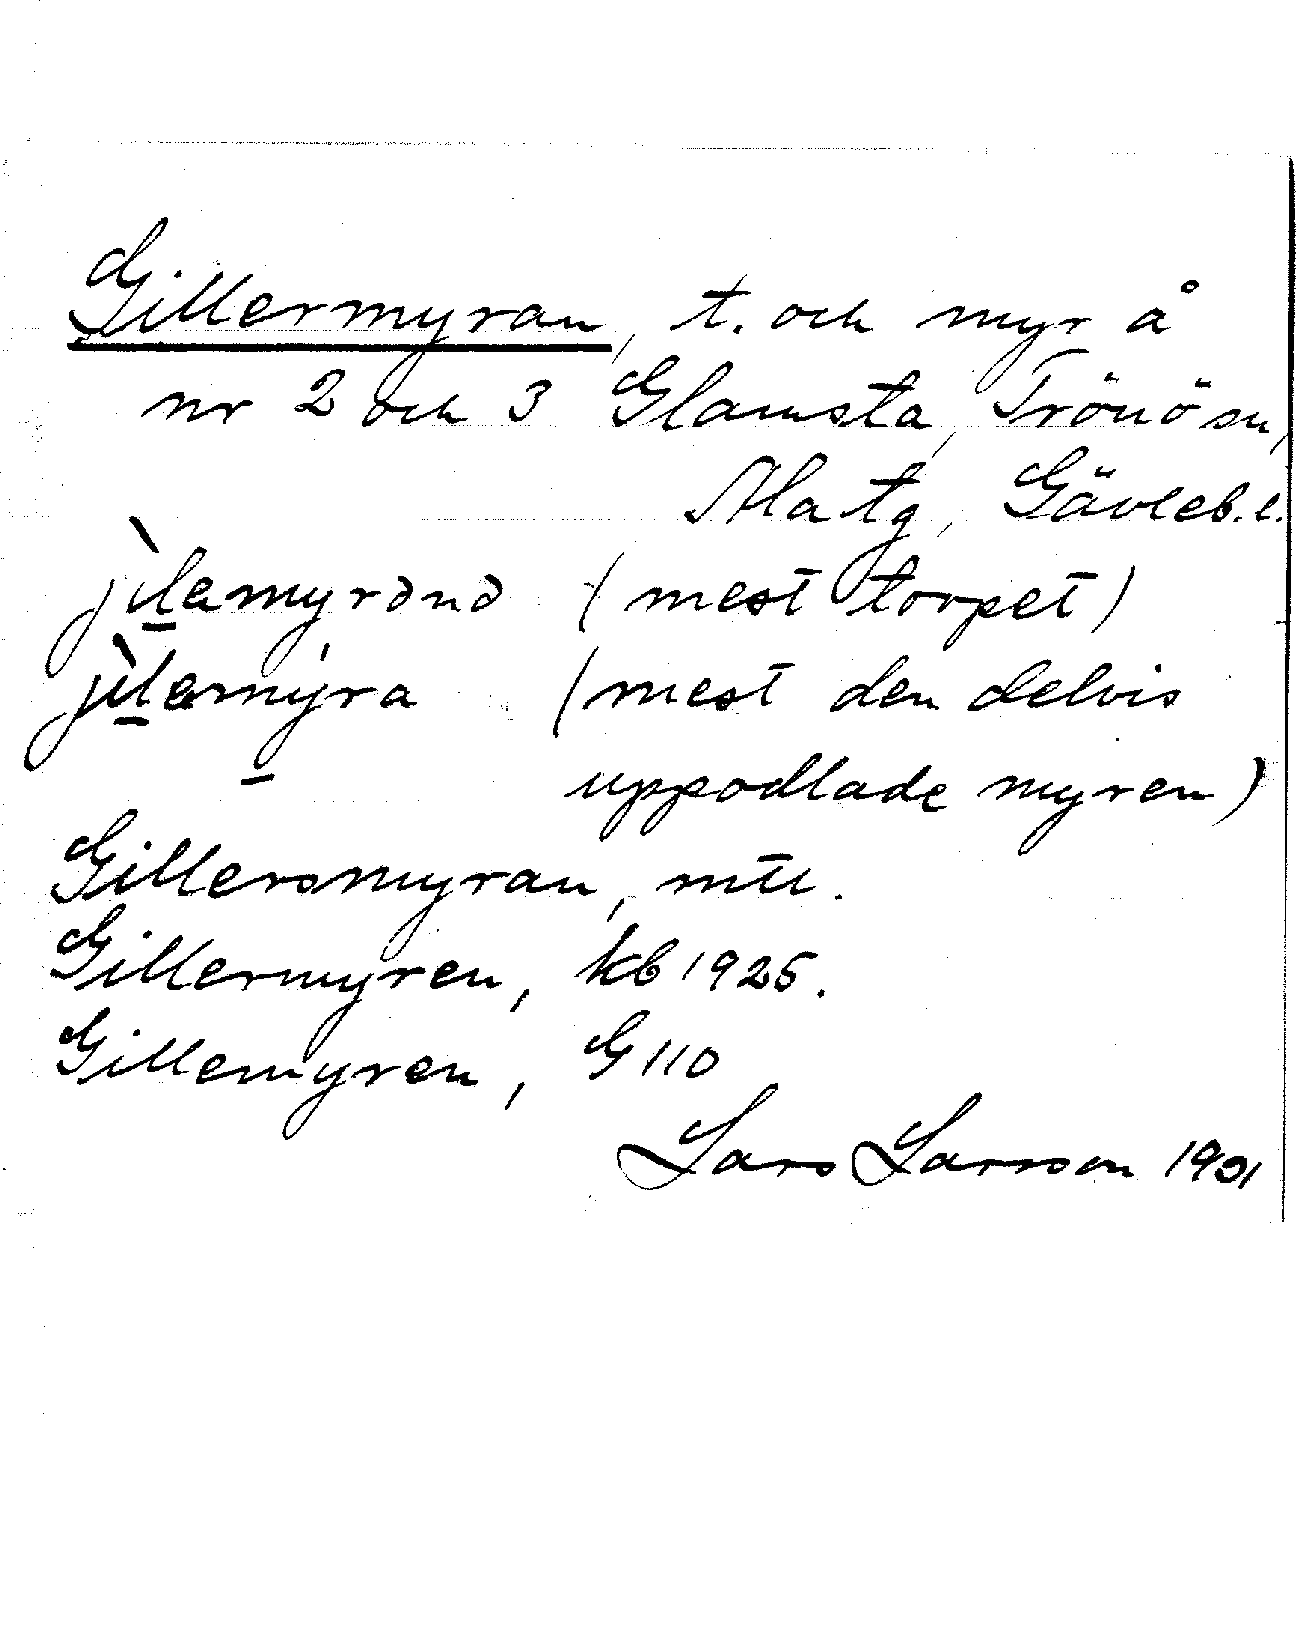 Gillermyran, t. och myr å
nr 2 och 3 Glamsta, Trönö sn,
Ala tg, Gävleb. l.
jìlamyrənə (mest torpet)
jìlamýra (mest den delvis
uppodlade myren)
Gillersmyran, mtl.
Gillermyren, kb 1925.
Gillemyren, G 110
Lars Larsson 1931